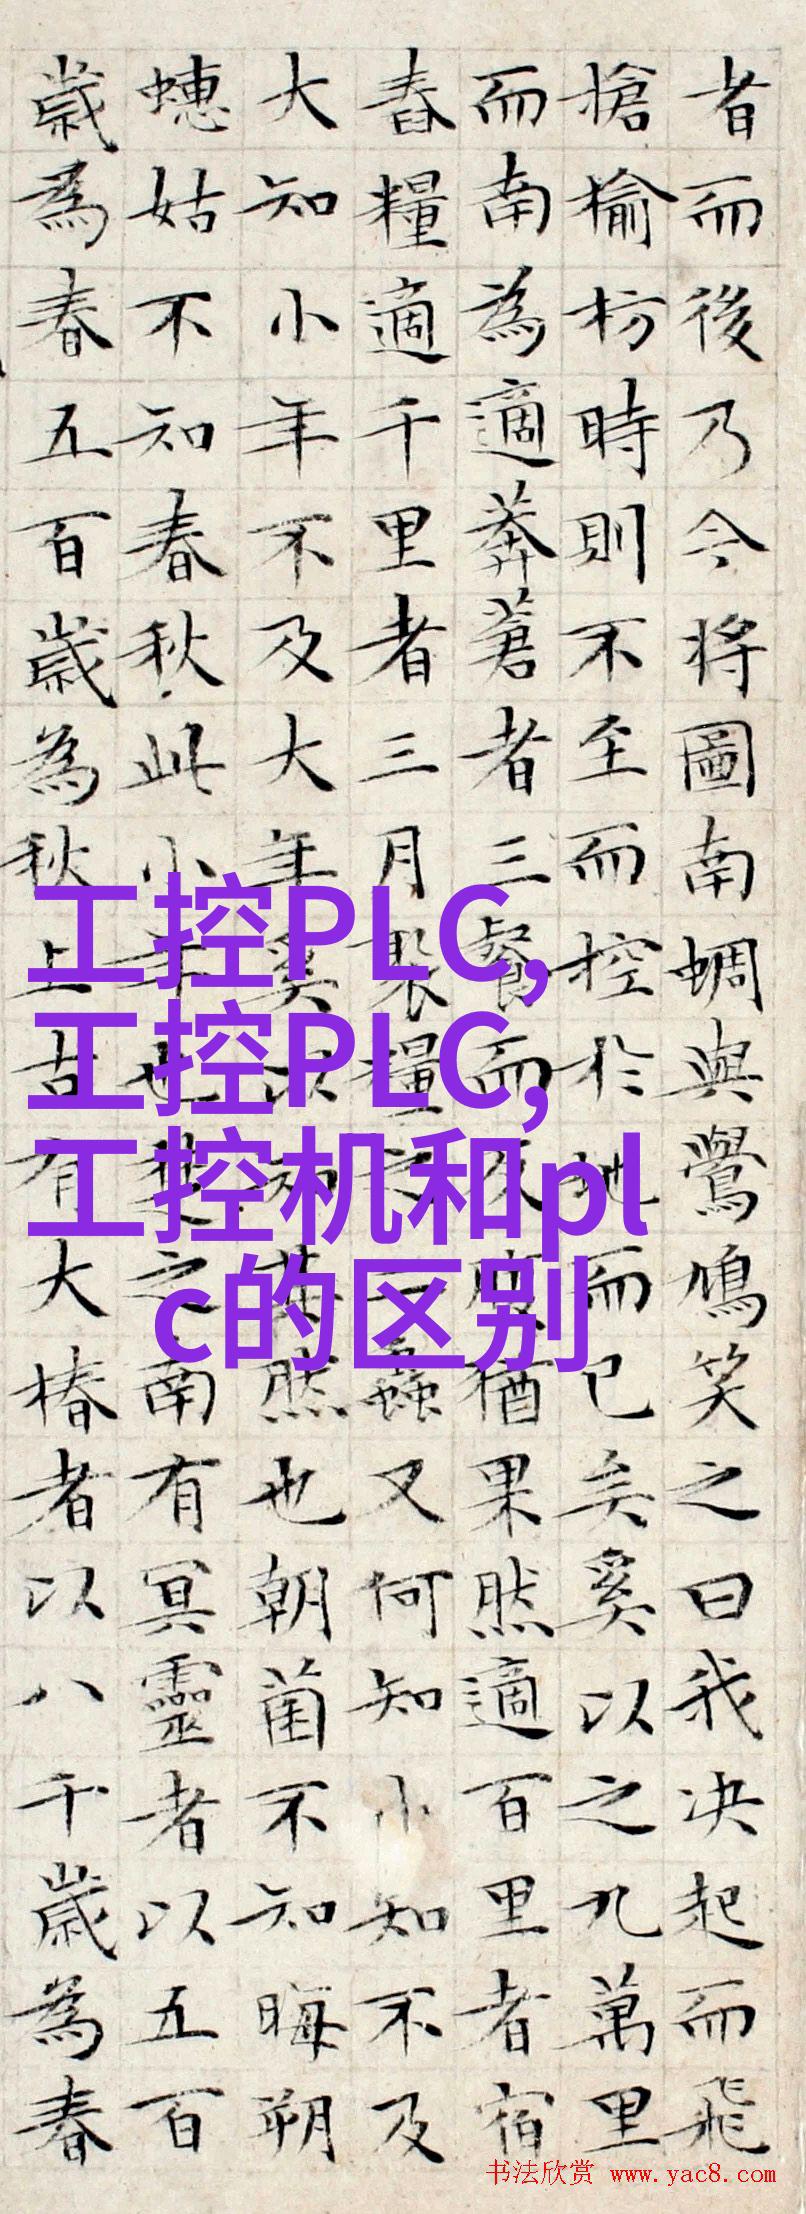 者而後乃今将圖南蜩與鷽鳩笑之曰我决起而飛
搶榆枋時則不至而控於地而已矣奚以之九萬里
而南為適莽蒼者三餐而反腹猶果然適百里者宿
舂糧適千里者三月聚糧之二蟲又何知小知不及
大知小年不及大年奚以知其然也朝菌不知晦朔
蟪姑不知春秋此小年也楚之南有冥靈者以五百
歲為春五百歲為秋上古有大椿者以八千歲為春
工控PLC,
工控PLC,
工控机和pl
c的区别
书法欣赏 www.yac8.com